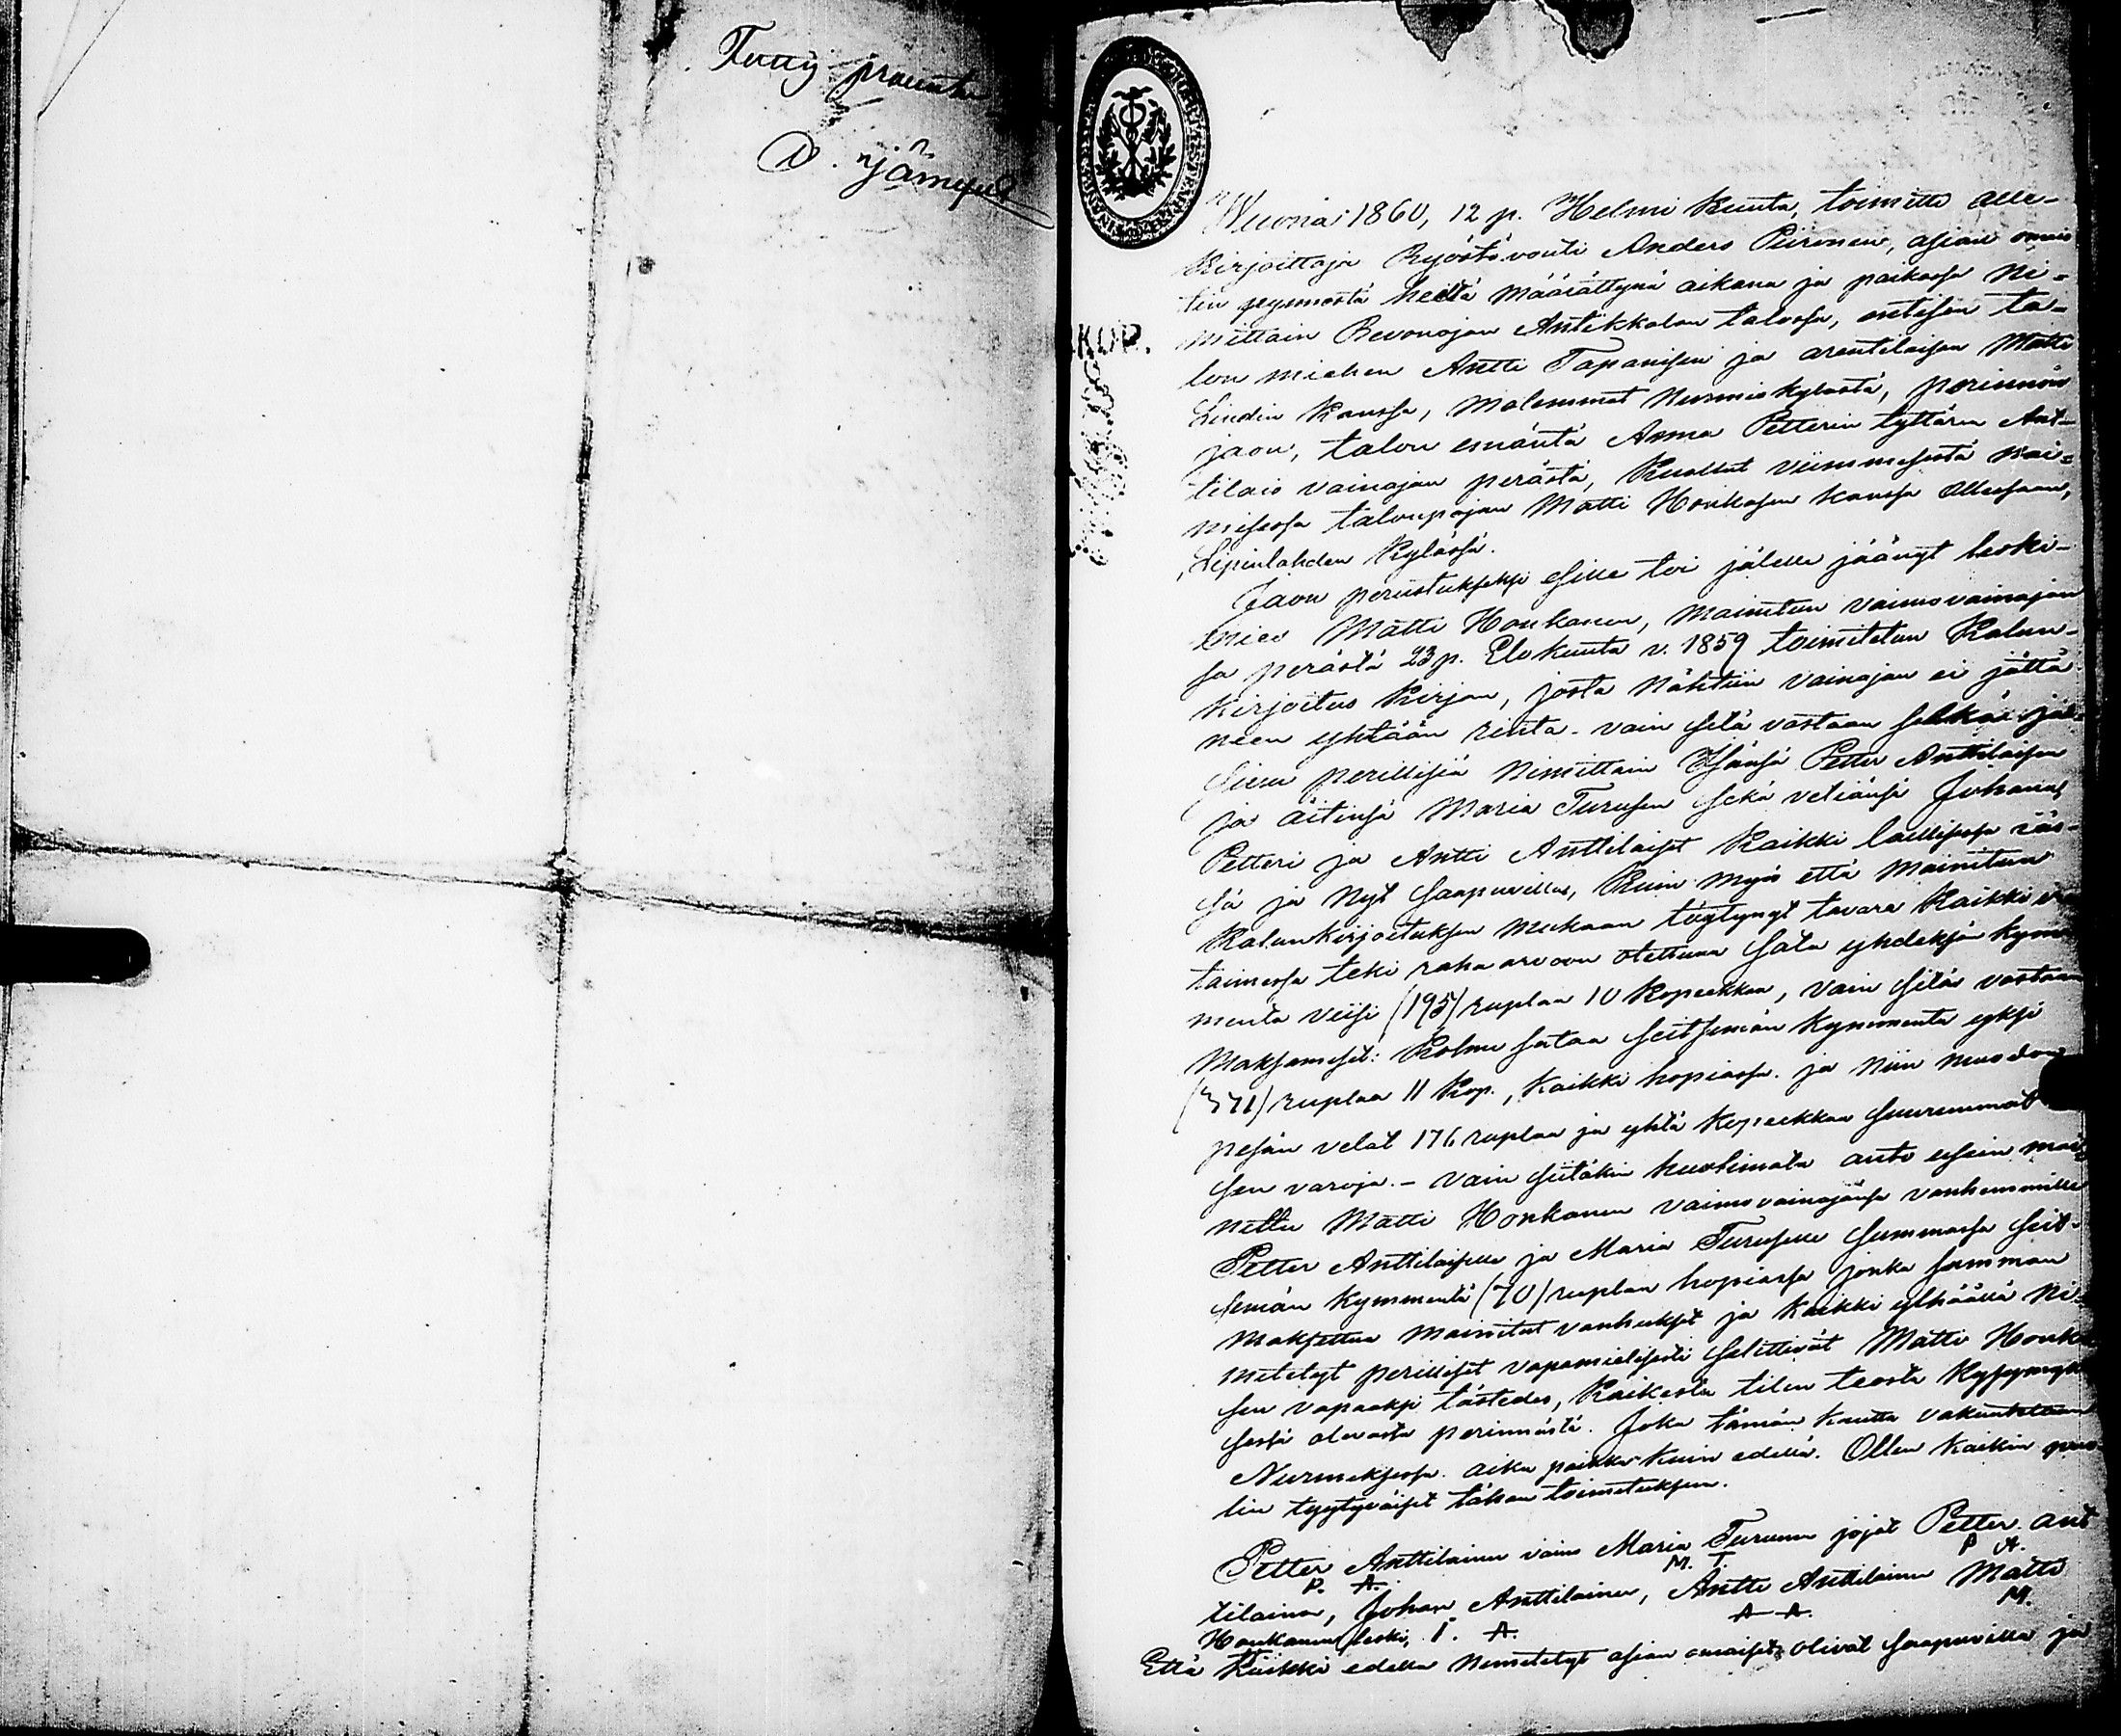 Wuona 1860, 12 p. Helmi kuuta, toimitti alle-
kirjoittaja Ryöstövouti Anders Piironen, asian omais
ten pyynnöstä heiltä määrättynä aikana ja paikassa ni-
mittäin Antikkalan talossa, entisen ta-
lon miehen Antti Tapanisen ja arentilaisen Matti
Lindin kanssa, Molemmat Nurmiskylästä, perinnön
jaon, talon emäntä Anna Petterin tyttären Ant-
tilais vainajan perästä, Kuollut viimmeksestä nai-
misessa talonpojan Matti Honkasen kanssa ollessaan,
Lipinlahden Kylässä.
Jaon perustukseksi esille toi jälelle jäänyt leski-
mies Matti Honkanen, Mainitun vaimovainajan
sa perästä 23 p. Elokuuta v. 1859 toimitetun Kalun-
kirjoitus kirjan, josta nähtiin vainajan ei jättä
neen yhtään rinta- vain sitä vastaan selkä-
perillisiä Nimittäin Isänsä Petter Anttilaisen
ja äitinsä Maria Turusen sekä veljänsä Johanas
Petteri ja Antti Anttilaiset Kaikki laillisessa iäs-
sä ja Nyt saapuvillas, Kuin myös että Mainitun
Kalunkirjoituksen mukaan löytynyt tavara Kaikki
taimessa teki raha arvoon otettuna sata yhdeksän kym
mentä viisi (195) ruplaa 10 Kopeekkaa, vain sitäs vastaan
Maksamiset: Kolme sataa seitsemän kymmentä yksi
(371) ruplaa 11 Kop., kaikki hopiassa. ja Niin muodon
pesän velat 176 ruplaa ja yhtä kopeekkaa suuremmat
sen varoja. - vain siitäkin huolimata anto usein mai-
nettu Matti Honkanen vaimovainajansa vanhemmille
Petter Anttilaiselle ja Maria Turuselle summassa seit-
semän Kymmentä (70) ruplaa hopiassa jonka summan
Maksettua Mainitut vanhukset ja kaikki ylhäällä Ni-
metetyt perilliset vapamielisesti selittivät Matti Honka
sen vapaaksi tästedes, Kaikesta tilin teosta Kysymyk
sessä olevasta perinnöstä. Joka tämän kautta vakuutetaan
Nurmeksessa. aika paikka kuin edellä. Ollen kaikin puo
lin tyytyväiset tähän toimituksen.
Petter Anttilainen vaimo Maria Turunen pojat Petter Ant
P. A. M. T. P A.
tilainen, Johan Anttilainen, Antti Anttilainen Matti
Honkanen leski, I. A. A A. M.
Että Kaikki edellä Nimitetyt asian omaiset olivat saapuvilla ja